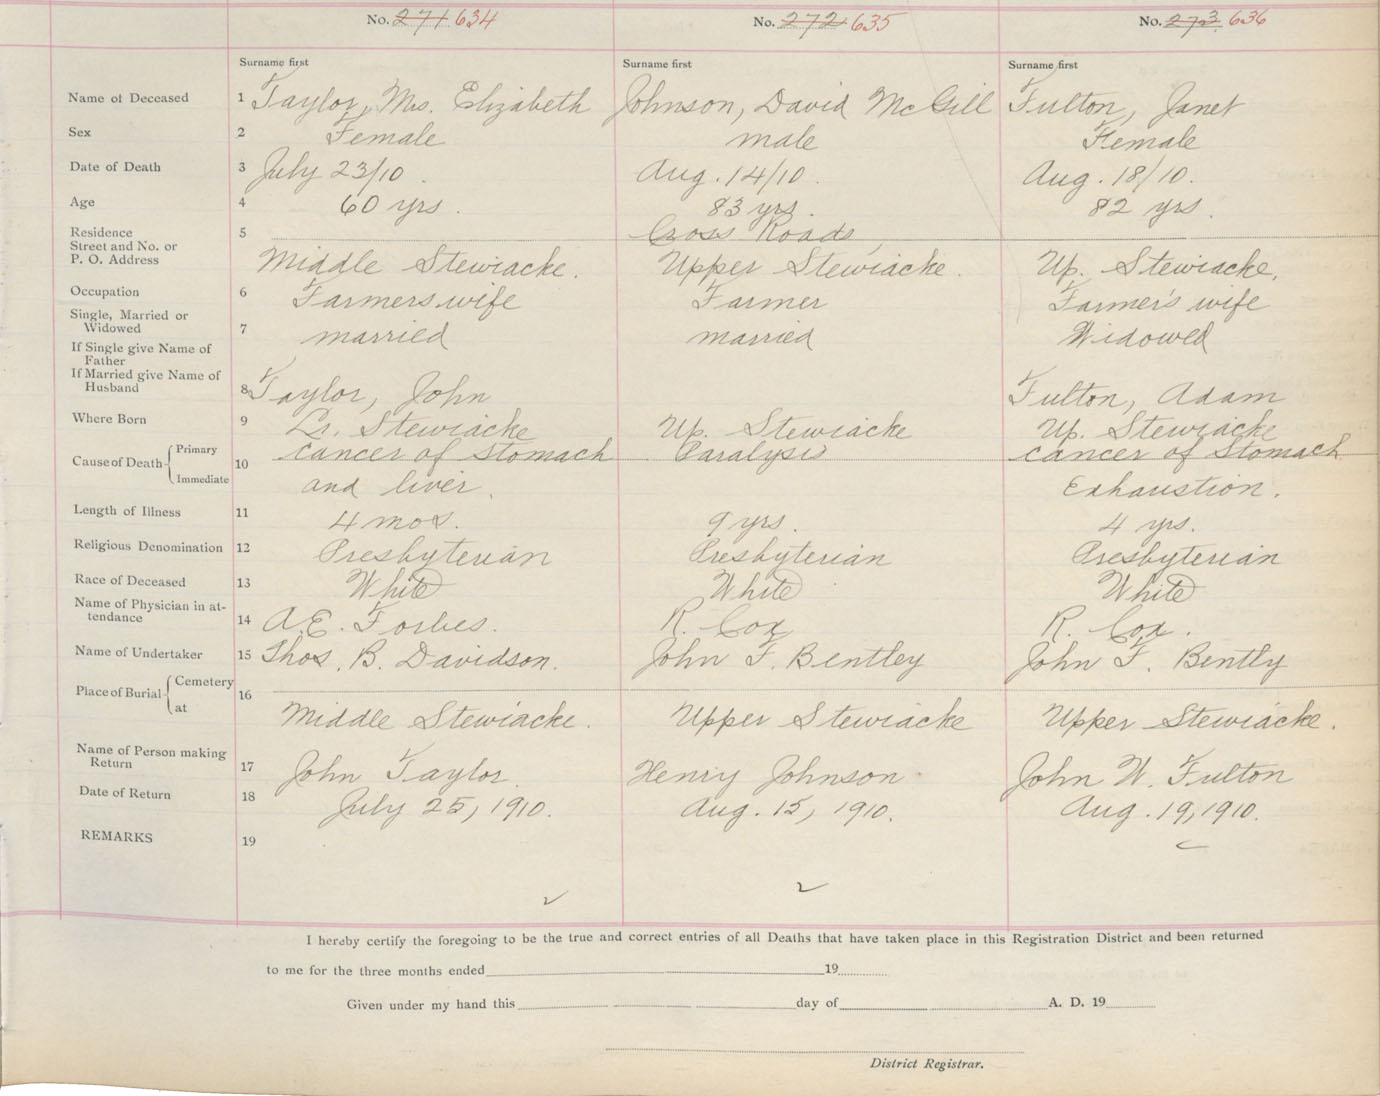 No. 271 634 No. 272 635 No. 273 636
Surname first Surname first Surname first
Name of Deceased 1 Taylor, Mrs. Elizabeth Johnson, David McGill Fulton, Janet
Sex 2 Female male Female
Date of Death 3 July 23/10. Aug. 14/10. Aug. 18/10.
Age 4 60 yrs. 83 yrs. 82 yrs.
Residence 5 Cross Roads,
Street and No. or
P. O. Address Middle Stewiacke. Upper Stewiacke. Up. Stewiacke,
Occupation 6 Farmers wife Farmer Farmer's wife
Single, Married or
Widowed 7 married married Widowed
If Single give Name of
Father
If Married give Name of
Husband 8 Taylor, John Fulton, Adam
Where Born 9 Lr. Stewiacke Up. Stewiacke Up. Stewiacke
Cause of Death Primary 10 cancer of stomach Paralysis cancer of stomach
Immediate and liver. Exhaustion.
Length of Illness 11 4 mos. 9 yrs. 4 yrs.
Religious Denomination 12 Presbyterian Presbyterian Presbyterian
Race of Deceased 13 White White White
Name of Physician in at-
tendance 14 A.E. Forbes. R. Cox R. Cox.
Name of Undertaker 15 Thos. B. Davidson. John F. Bentley John F. Bently
Place of Burial Cemetery 16
at Middle Stewiacke. Upper Stewiacke Upper Stewiacke.
Name of Person making
Return 17 John Taylor Henry Johnson John W. Fulton
Date of Return 18 July 25, 1910. Aug. 15, 1910. Aug. 19, 1910.
REMARKS 19
I hereby certify the foregoing to be the true and correct entries of all Deaths that have taken place in this Registration District and been returned
to me for the three months ended 19
Given under my hand this day of A. D. 19
District Registrar.